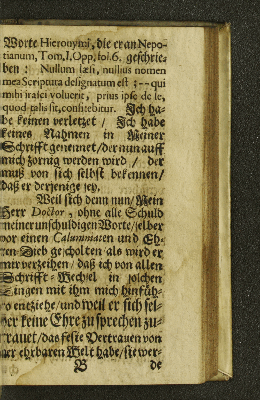 Worte Hieronymi, die er an Nepo-
tianum, Tom, I, Opp, fol. 6. geschrie-
ben: Nullum læsi, nullius nomen
mea Scriptura designatum est; -- qui
mihi irasci voluerit, prius ipse de se,
quod talis sit, confitebitur. Ich ha-
be keinen verletzet / Ich habe
keines Nahmen in Meiner
Schrifft genennet / der nun auff
mich zornig werden wird / der
muß von sich selbst bekennen /
daß er derjenige sey.
Weil sich denn nun / Mein
Herr Doctor, ohne alle Schuld
meiner unschuldigen Worte / selber
vor einen Calumnianten und Eh-
ren-Dieb gescholten als wird er
mir verzeihen / daß ich von allen
Schrifft-Wechsel in solchen
Dingen mit ihm mich hinfüh-
ro entziehe / und weil er sich sel-
ber keine Ehre zu sprechen zu-
trauet / das feste Vertrauen von
der ehrbaren Welt habe / sie wer-
B de